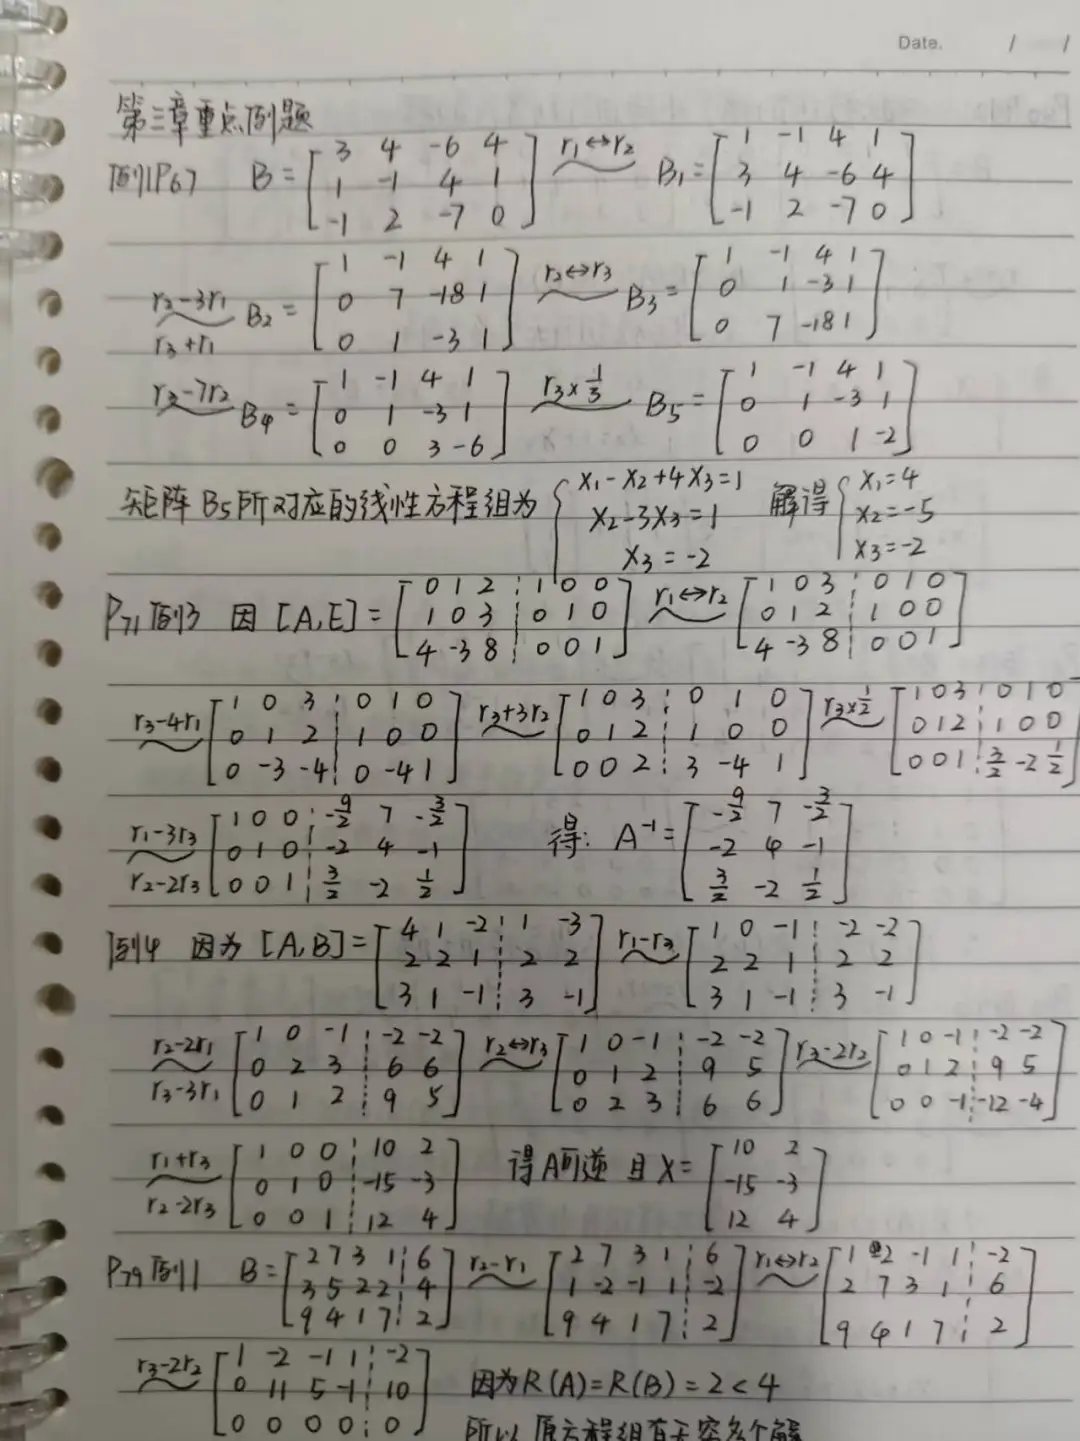 Date. / /
第三章重点例题
例1P67 B = [3 4 -6 4; 1 -1 4 1; -1 2 -7 0] r1↔r2 B1 = [1 -1 4 1; 3 4 -6 4; -1 2 -7 0]
r2-3r1 r3+r1 B2 = [1 -1 4 1; 0 7 -18 1; 0 1 -3 1] r2↔r3 B3 = [1 -1 4 1; 0 1 -3 1; 0 7 -18 1]
r3-7r2 B4 = [1 -1 4 1; 0 1 -3 1; 0 0 3 -6] r3×1/3 B5 = [1 -1 4 1; 0 1 -3 1; 0 0 1 -2]
矩阵B5所对应的线性方程组为 { x1-x2+4x3=1 x2-3x3=1 x3=-2 解得 { x1=4 x2=-5 x3=-2
P71例3 因 [A,E] = [0 1 2 ¦ 1 0 0; 1 0 3 ¦ 0 1 0; 4 -3 8 ¦ 0 0 1] r1↔r2 [1 0 3 ¦ 0 1 0; 0 1 2 ¦ 1 0 0; 4 -3 8 ¦ 0 0 1]
r3-4r1 [1 0 3 ¦ 0 1 0; 0 1 2 ¦ 1 0 0; 0 -3 -4 ¦ 0 -4 1] r3+3r2 [1 0 3 ¦ 0 1 0; 0 1 2 ¦ 1 0 0; 0 0 2 ¦ 3 -4 1] r3×1/2 [1 0 3 ¦ 0 1 0; 0 1 2 ¦ 1 0 0; 0 0 1 ¦ 3/2 -2 1/2]
r1-3r3 r2-2r3 [1 0 0 ¦ -9/2 7 -3/2; 0 1 0 ¦ -2 4 -1; 0 0 1 ¦ 3/2 -2 1/2] 得: A⁻¹ = [-9/2 7 -3/2; -2 4 -1; 3/2 -2 1/2]
例4 因为 [A,B] = [4 1 -2 ¦ 1 -3; 2 2 1 ¦ 2 2; 3 1 -1 ¦ 3 -1] r1-r3 [1 0 -1 ¦ -2 -2; 2 2 1 ¦ 2 2; 3 1 -1 ¦ 3 -1]
r2-2r1 r3-3r1 [1 0 -1 ¦ -2 -2; 0 2 3 ¦ 6 6; 0 1 2 ¦ 9 5] r2↔r3 [1 0 -1 ¦ -2 -2; 0 1 2 ¦ 9 5; 0 2 3 ¦ 6 6] r3-2r2 [1 0 -1 ¦ -2 -2; 0 1 2 ¦ 9 5; 0 0 -1 ¦ -12 -4]
r1+r3 r2-2r3 [1 0 0 ¦ 10 2; 0 1 0 ¦ -15 -3; 0 0 1 ¦ 12 4] 得A可逆 且 X = [10 2; -15 -3; 12 4]
P79例1 B = [2 7 3 1 ¦ 6; 3 5 2 2 ¦ 4; 9 4 1 7 ¦ 2] r2-r1 [2 7 3 1 ¦ 6; 1 -2 -1 1 ¦ -2; 9 4 1 7 ¦ 2] r1↔r2 [1 -2 -1 1 ¦ -2; 2 7 3 1 ¦ 6; 9 4 1 7 ¦ 2]
r3-2r2 [1 -2 -1 1 ¦ -2; 0 11 5 -1 ¦ 10; 0 0 0 0 ¦ 0] 因为R(A)=R(B)=2<4
所以原方程组有无穷多个解